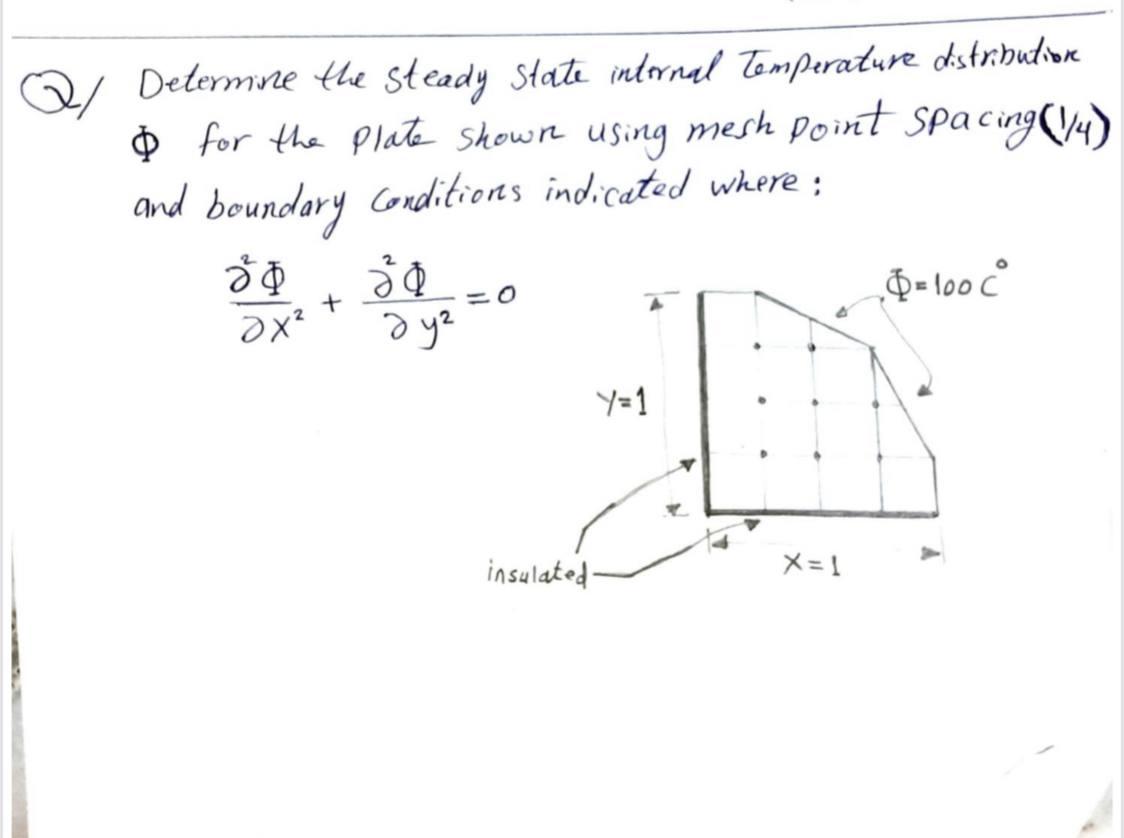 Q/ Determine the steady state internal Temperature distribution
Φ for the plate shown using mesh point spacing (1/4)
and boundary Conditions indicated where :
∂²Φ/∂x² + ∂²Φ/∂y² = 0
Φ=100 C°
Y=1
insulated
X=1